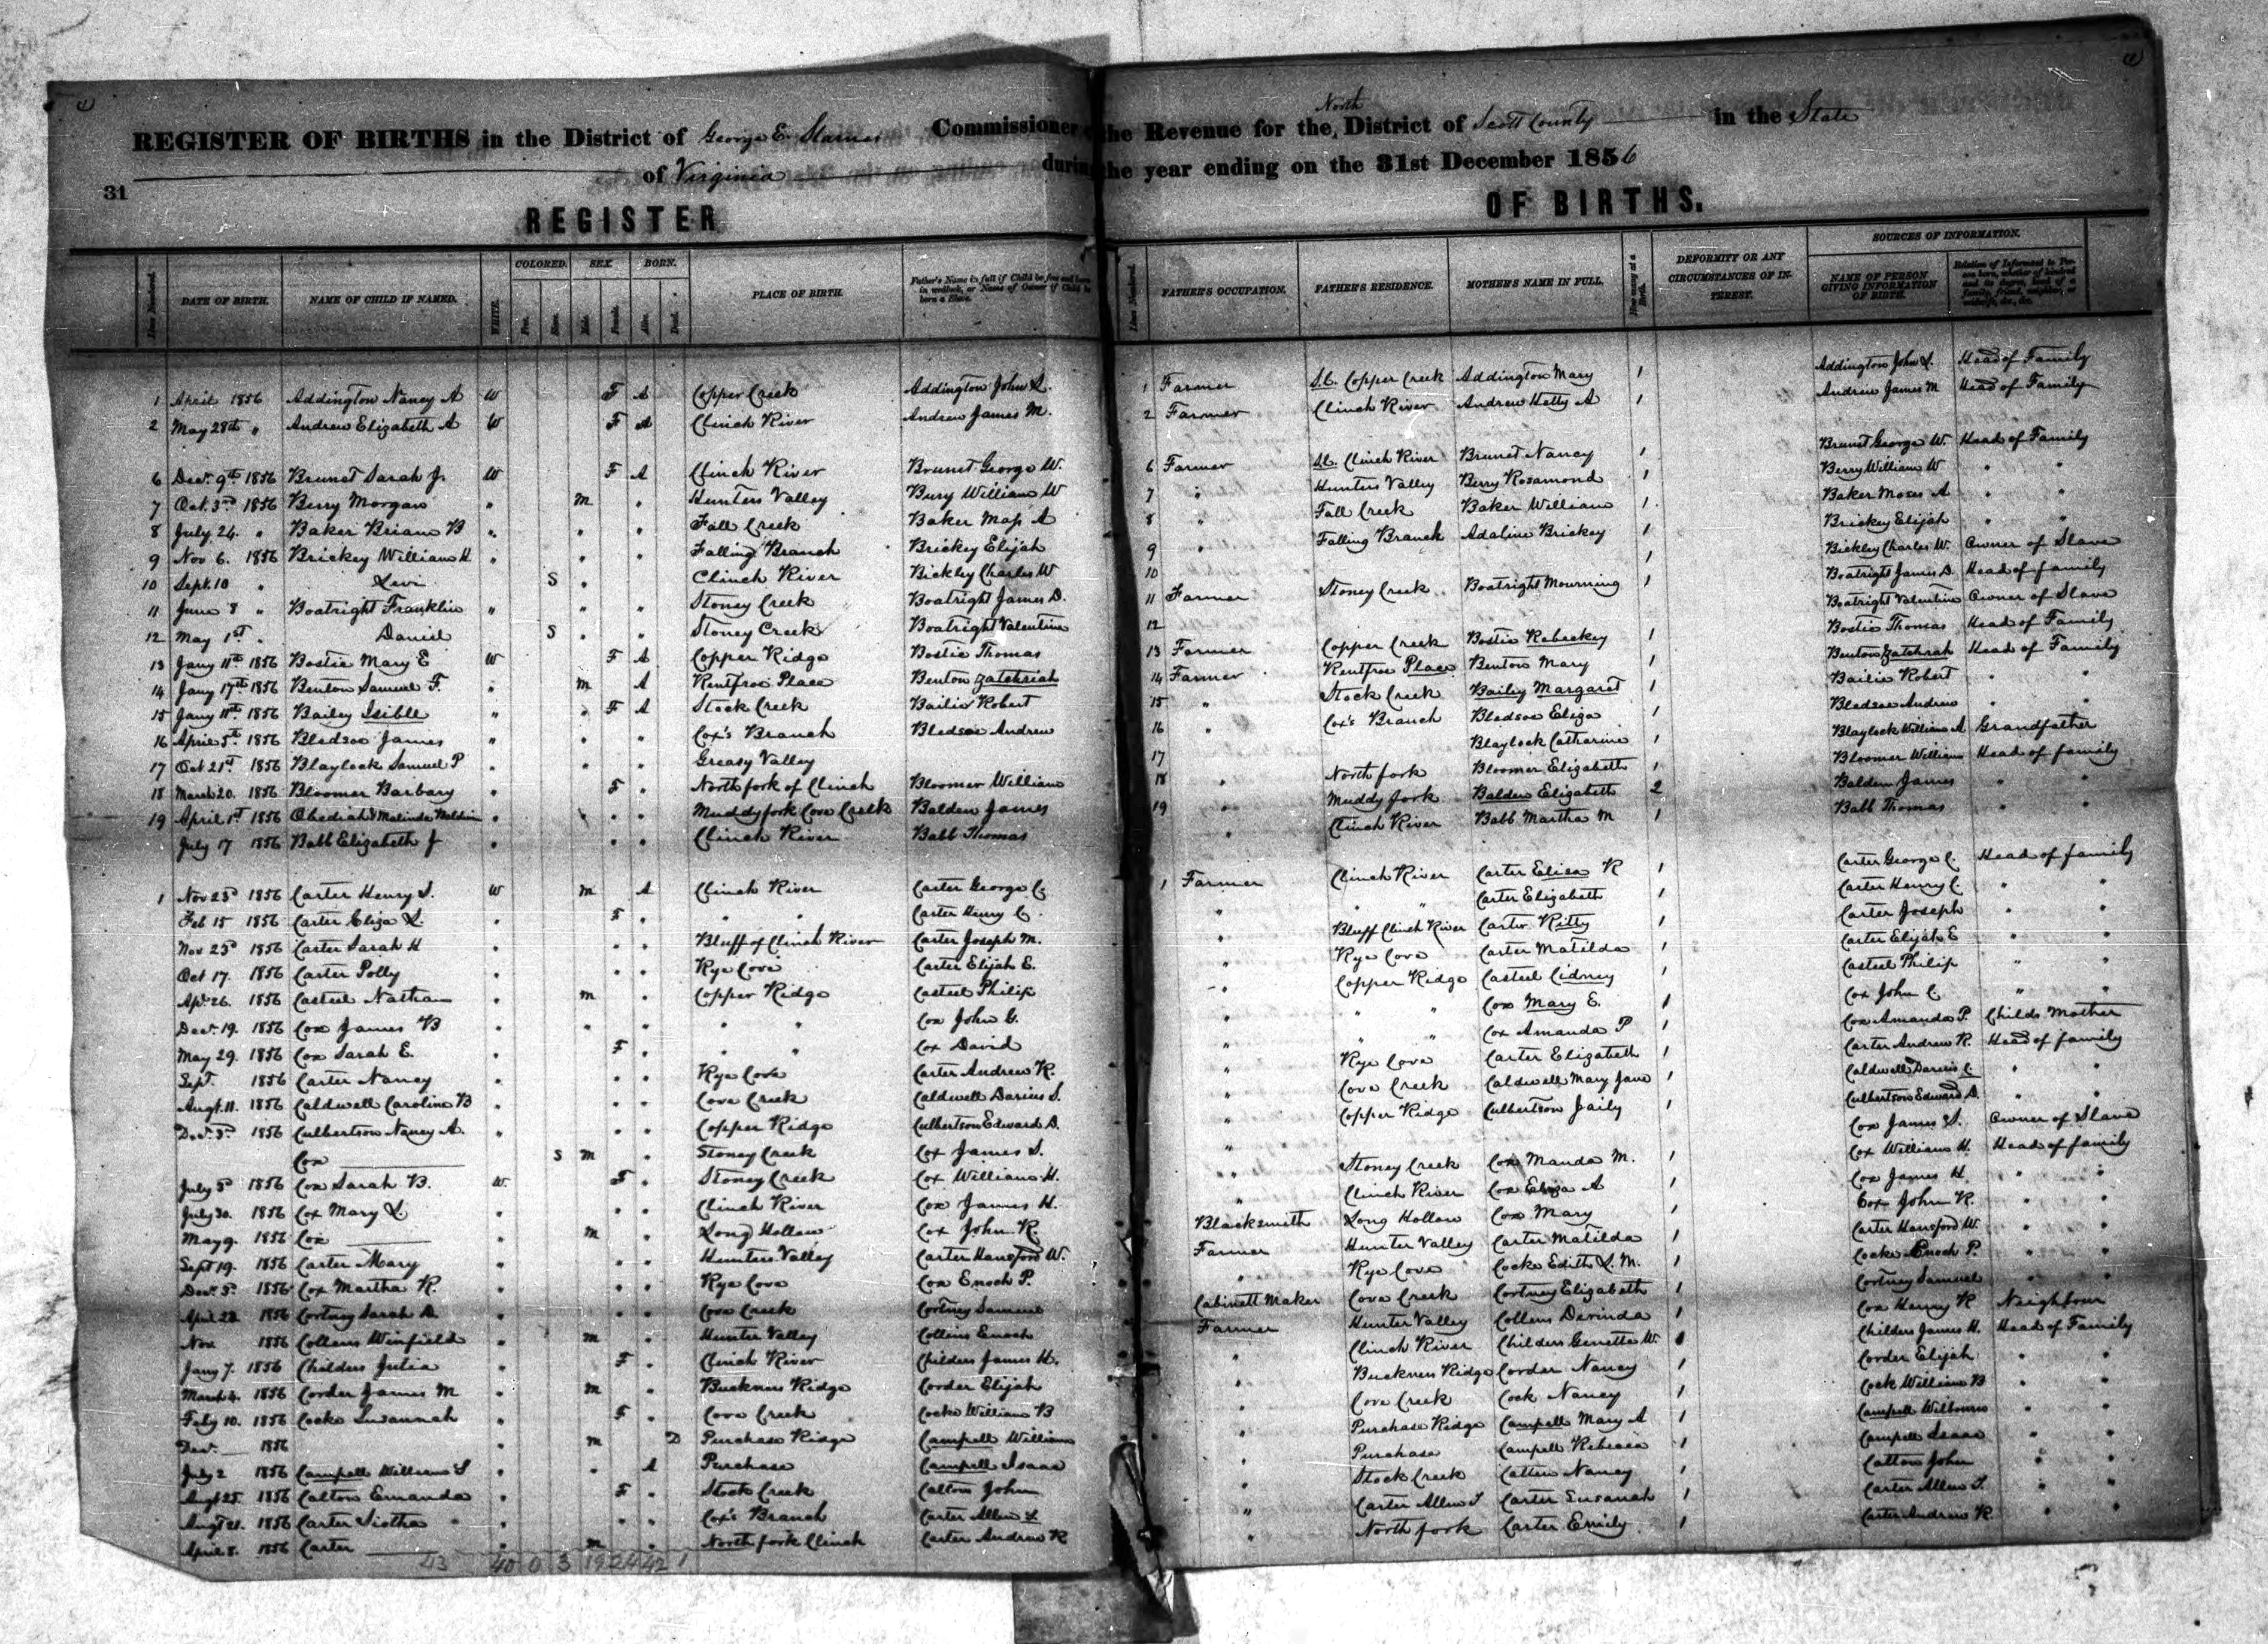 4
4
North
REGISTER OF BIRTHS in the District of George E. Starnes Commissioner of the Revenue for the District of Scott County in the State
of Virginia during the year ending on the 31st December 1856
31
REGISTER OF BIRTHS.
Line Numbered. DATE OF BIRTH. NAME OF CHILD IF NAMED. WHITE. COLORED. Free. Slave. SEX. Male. Female. BORN. Alive. Dead. PLACE OF BIRTH. Father's Name in full if Child be free and born in wedlock, or Name of Owner if Child be born a Slave. Line Numbered. FATHER'S OCCUPATION. FATHER'S RESIDENCE. MOTHER'S NAME IN FULL. How many at a Birth. DEFORMITY OR ANY CIRCUMSTANCES OF INTEREST. SOURCES OF INFORMATION. NAME OF PERSON GIVING INFORMATION OF BIRTH. Relation of Informant to Person born, whether of kindred and its degree, head of a Family, friend, neighbor, or midwife, &c., &c.
1 April 1856 Addington Nancy A W F A Copper Creek Addington John L. 1 Farmer S.C. Copper Creek Addington Mary 1 Addington John L. Head of Family
2 May 28th " Andrew Elizabeth A W F A Clinch River Andrew James M. 2 Farmer Clinch River Andrew Hetty A 1 Andrew James M Head of Family
6 Decr. 9th 1856 Brunet Sarah J. W F A Clinch River Brunet George W. 6 Farmer S.C. Clinch River Brunet Nancy 1 Brunet George W. Head of Family
7 Oct. 3rd 1856 Berry Morgan " m " Hunters Valley Bury William W 7 " Hunters Valley Berry Rosamond 1 Berry William W " "
8 July 24. " Baker Briam B " " " Fall Creek Baker Moss A 8 " Fall Creek Baker William 1 Baker Moses A " "
9 Nov 6. 1856 Brickey William H " " " Falling Branch Brickey Elijah 9 " Falling Branch Adaline Brickey 1 Brickey Elijah " "
10 Sept. 10 " Levi S " " Clinch River Bickley Charles W 10 1 Bickley Charles W. Owner of Slave
11 June 8 " Boatright Franklin " " " Stoney Creek Boatright James D. 11 Farmer Stoney Creek Boatright Mourning 1 Boatright James D. Head of family
12 May 1st " Daniel S " " Stoney Creek Boatright Valentine 12 Boatright Valentine Owner of Slave
13 Jany 11th 1856 Bostic Mary E W F A Copper Ridge Bostic Thomas 13 Farmer Copper Creek Bostic Rebeckey 1 Bostic Thomas Head of Family
14 Jany 17th 1856 Benton Samuel F. " m A Rentfroe Place Benton Zatchriah 14 Farmer Rentfroe Place Benton Mary 1 Benton Zatchriah Head of Family
15 Jany 11th 1856 Bailey Isible " F A Stock Creek Bailie Robert 15 " Stock Creek Bailey Margaret 1 Bailie Robert " "
16 April 5th 1856 Bledsoe James " " " Cox's Branch Bledsoe Andrew 16 " Cox's Branch Bledsoe Eliza 1 Bledsoe Andrew " "
17 Oct 21st 1856 Blaylock Samuel P " " " Greasy Valley 17 Blaylock Catharine 1 Blaylock William A Grandfather
18 March 20. 1856 Bloomer Barbary " F " North fork of Clinch Bloomer William 18 " North fork Bloomer Elizabeth 1 Bloomer William Head of family
19 April 1st 1856 Obediah & Malinda " " " Muddy fork Cove Creek Balden James 19 " Muddy fork Balden Elizabeth 2 Balden James " "
July 17 1856 Babb Elizabeth J " " " Clinch River Babb Thomas " Clinch River Babb Martha M 1 Babb Thomas " "
1 Nov 23d 1856 Carter Henry S. W m A Clinch River Carter George C. 1 Farmer Clinch River Carter Eliza R 1 Carter George C. Head of family
Feb 15 1856 Carter Eliza L. " F " " " Carter Henry C. " " " Carter Elizabeth 1 Carter Henry C. " "
Nov 25d 1856 Carter Sarah H " " " Bluff of Clinch River Carter Joseph M. " Bluff Clinch River Carter Kitty 1 Carter Joseph " "
Oct 17. 1856 Carter Polly " " " Rye Cove Carter Elijah E. " Rye Cove Carter Matilda 1 Carter Elijah E " "
Apr. 26. 1856 Casteel Nathan " m " Copper Ridge Casteel Philip " Copper Ridge Casteel Cidney 1 Casteel Philip " "
Decr. 19. 1856 Cox James B " " " " " Cox John G. " " " Cox Mary E. 1 Cox John C. " "
May 29. 1856 Cox Sarah E. " F " " " Cox David " " " Cox Amanda P 1 Cox Amanda P. Childs Mother
Sept. 1856 Carter Nancy " " " Rye Cove Carter Andrew R. " Rye Cove Carter Elizabeth 1 Carter Andrew R. Head of family
Augt. 11. 1856 Caldwell Caroline B " " " Cove Creek Caldwell Darius S. " Cove Creek Caldwell Mary Jane 1 Caldwell Darius C. " "
Decr. 3d 1856 Culbertson Nancy A. " " " Copper Ridge Culbertson Edward D. " Copper Ridge Culbertson Jaily 1 Culbertson Edward D. " "
Cox S m " Stoney Creek Cox James S. Cox James S. Owner of Slave
July 3d 1856 Cox Sarah B. W. F " Stoney Creek Cox William H. " Stoney Creek Cox Manda M. 1 Cox William H. Head of family
July 30. 1856 Cox Mary L " " " Clinch River Cox James H. " Clinch River Cox Eliza A 1 Cox James H. " "
May 9. 1856 Cox " m " Long Hollow Cox John R. Blacksmith Long Hollow Cox Mary 1 Cox John R. " "
Sept 19. 1856 Carter Mary " " " Hunters Valley Carter Hansford W. Farmer Hunter Valley Carter Matilda 1 Carter Hansford W. " "
Decr. 3d. 1856 Cox Martha R. " " " Rye Cove Cox Enoch P. " Rye Cove Cocke Edith L. M. 1 Cocke Enoch P. " "
April 28 1856 Cortney Sarah D. " " " Cove Creek Cortney Samuel Cabinett Maker Cove Creek Cortney Elizabeth 1 Cortney Samuel " "
Nov 1856 Collens Winfield " m " Hunter Valley Collens Enoch Farmer Hunter Valley Collens Derinda 1 Cox Henry R Neighbour
Jany 7. 1856 Childers Julia " F " Clinch River Childers James H. " Clinch River Childers Genetta W. 1 Childers James H. Head of Family
March 4. 1856 Corder James M " m " Buckners Ridge Corder Elijah " Buckners Ridge Corder Nancy 1 Corder Elijah " "
Feby 10. 1856 Cocke Susannah " F " Cove Creek Cocke William B " Cove Creek Cock Nancy 1 Cock William B " "
Decr. 1856 " m D Purchase Ridge Campell William " Purchase Ridge Campell Mary A 1 Campell " "
July 2 1856 Campell William S " " A Purchase Campell Isaac " Purchase Campell Rebecca 1 Campell Isaac " "
Augt 25. 1856 Calton Emanda " F " Stock Creek Calton John " Stock Creek Catten Nancy 1 Catton John " "
Augt 21. 1856 Carter " " " Cox's Branch Carter Allen L " Carter Allen S Carter Susanah 1 Carter Allen S. " "
April 8. 1856 Carter " m " North fork Clinch Carter Andrew R " North fork Carter Emily 1 Carter Andrew R. " "
43 40 0 3 19 24 42 1